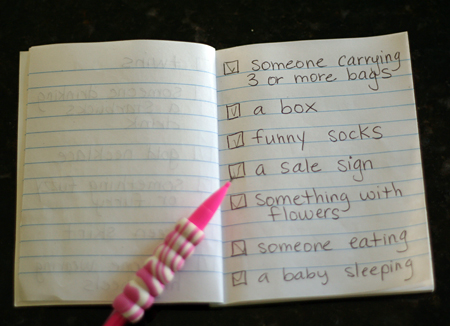 someone carrying
3 or more bags
a box
funny socks
a sale sign
something with
flowers
someone eating
a baby sleeping